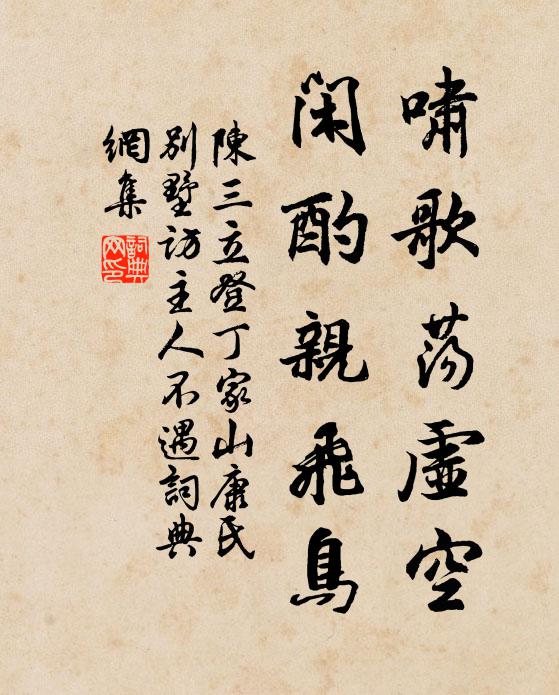 嘯歌蕩虛空
閑酌親飛鳥
陳三立登丁家山康氏
別墅訪主人不遇詞典
網集
詞典
网印